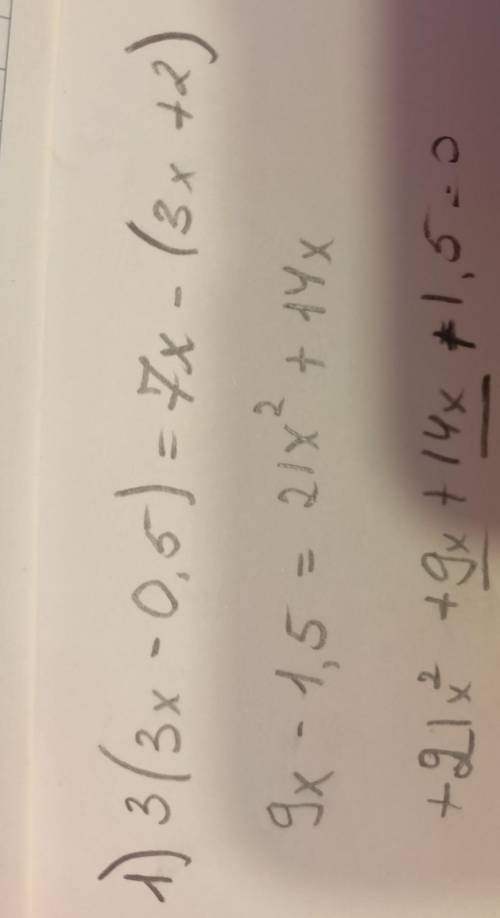 1) 3(3x - 0,5) = 7x - (3x + 2)
9x - 1,5 = 21x² + 14x
+21x² + 9x + 14x + 1,5 = 0